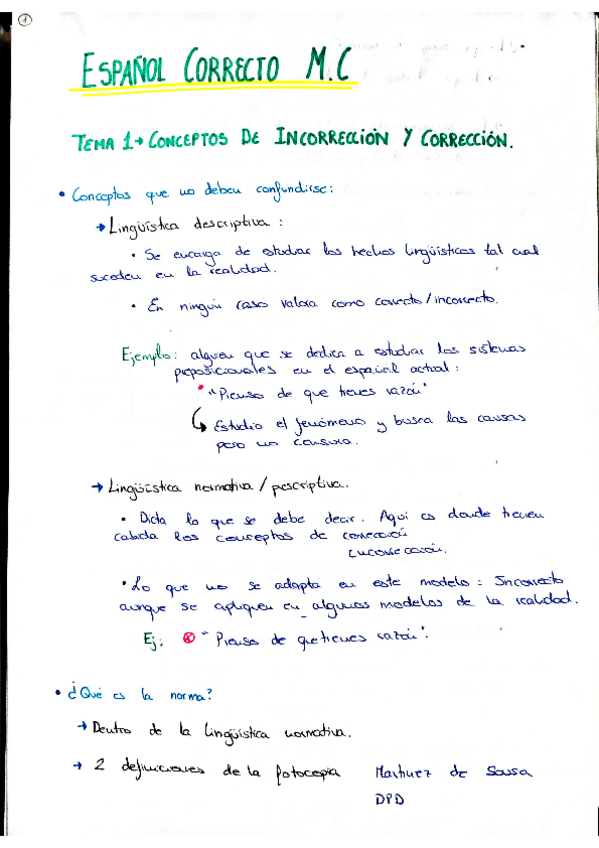 1
ESPAÑOL CORRECTO M.C
TEMA 1→ CONCEPTOS DE INCORRECCIÓN Y CORRECCIÓN.
• Conceptos que no deben confundirse:
→ Lingüística descriptiva :
• Se encarga de estudiar los hechos lingüísticos tal cual
suceden en la realidad.
• En ningún caso valora como correcto/incorrecto.
Ejemplo: alguien que se dedica a estudiar los sistemas
preposicionales en el español actual :
* "Pienso de que tienes razón"
↳ Estudia el fenómeno y busca las causas
pero no censura.
→ Lingüística normativa / pescriptiva.
• Dicta lo que se debe decir. Aquí es donde tienen
cabida los conceptos de corrección
incorrección.
• Lo que no se adapta en este modelo : Incorrecto
aunque se apliquen en algunos modelos de la realidad.
Ej: ⊗ "Pienso de que tienes razón".
• ¿Qué es la norma?
→ Dentro de la lingüística normativa.
→ 2 definiciones de la fotocopia Martínez de Sousa
DPD